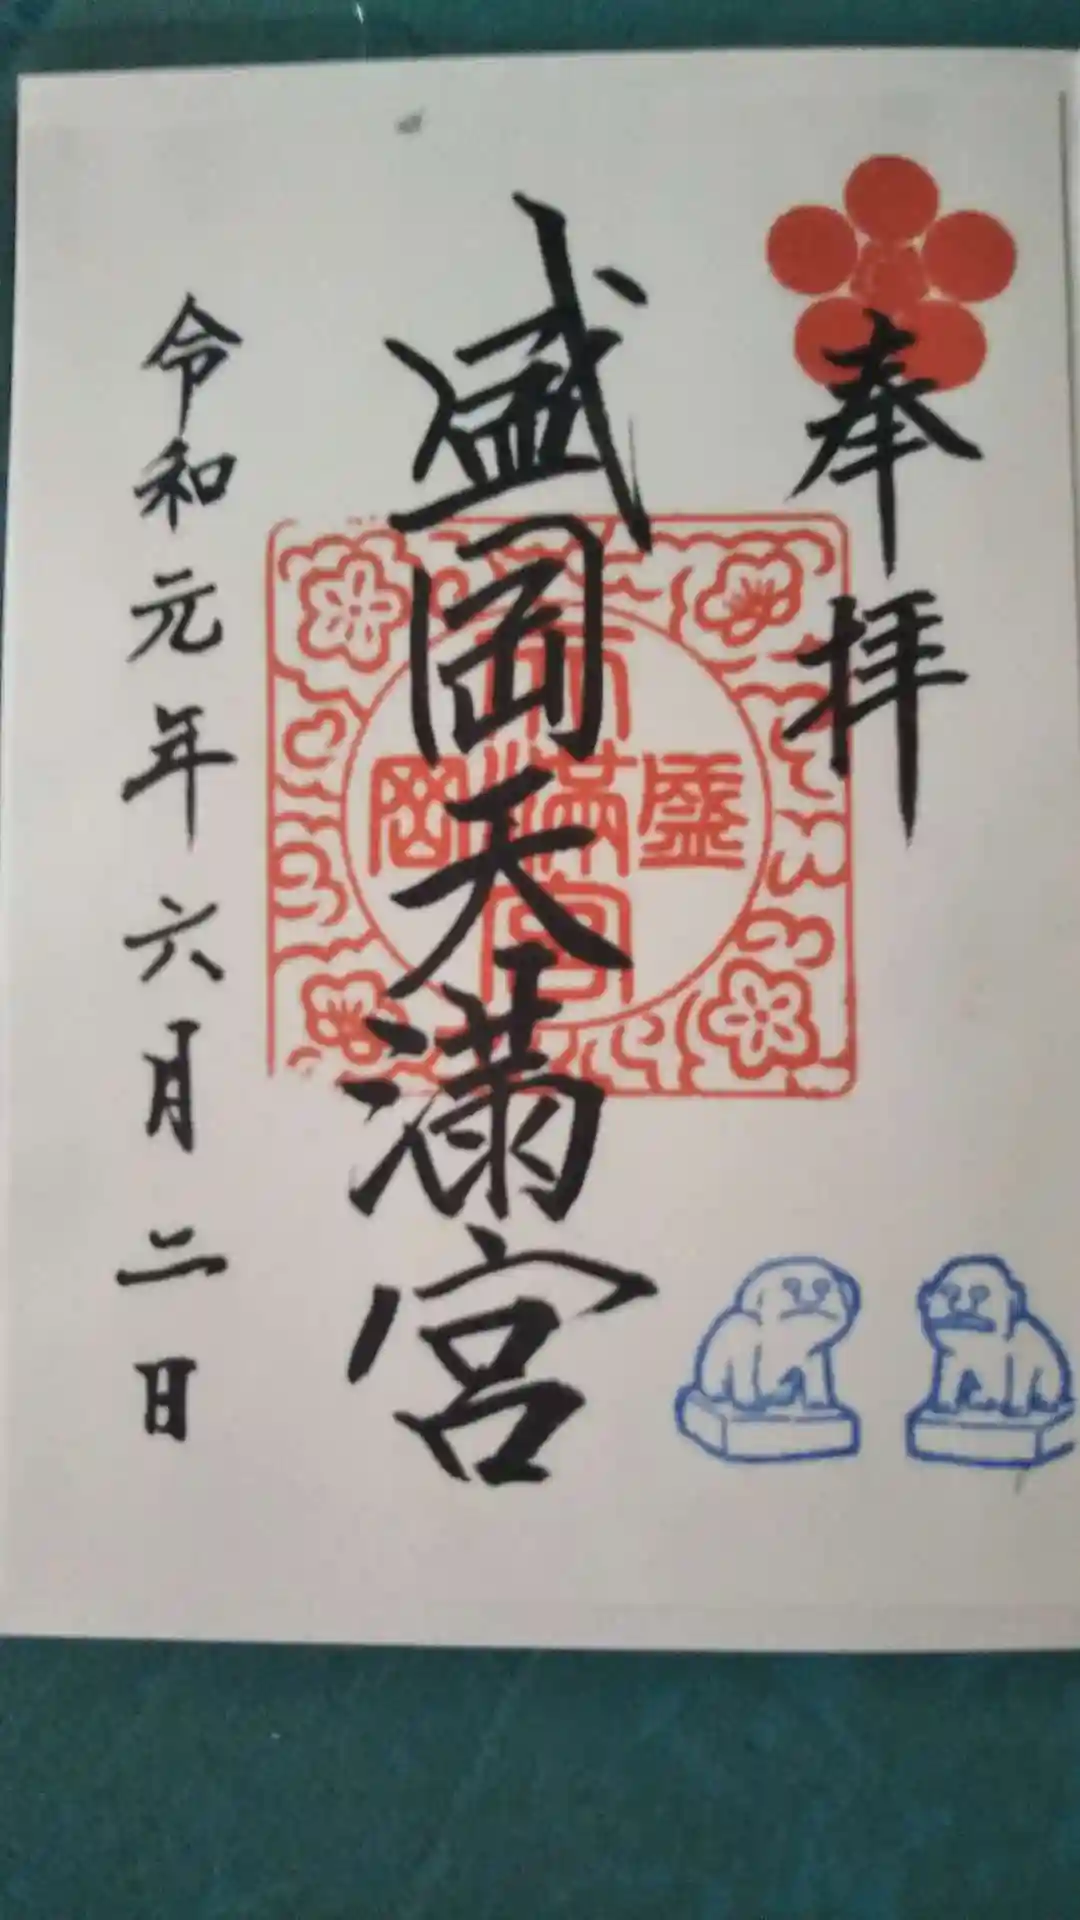 奉拝
盛岡天満宮
天
盛満岡
宮
令和元年六月二日